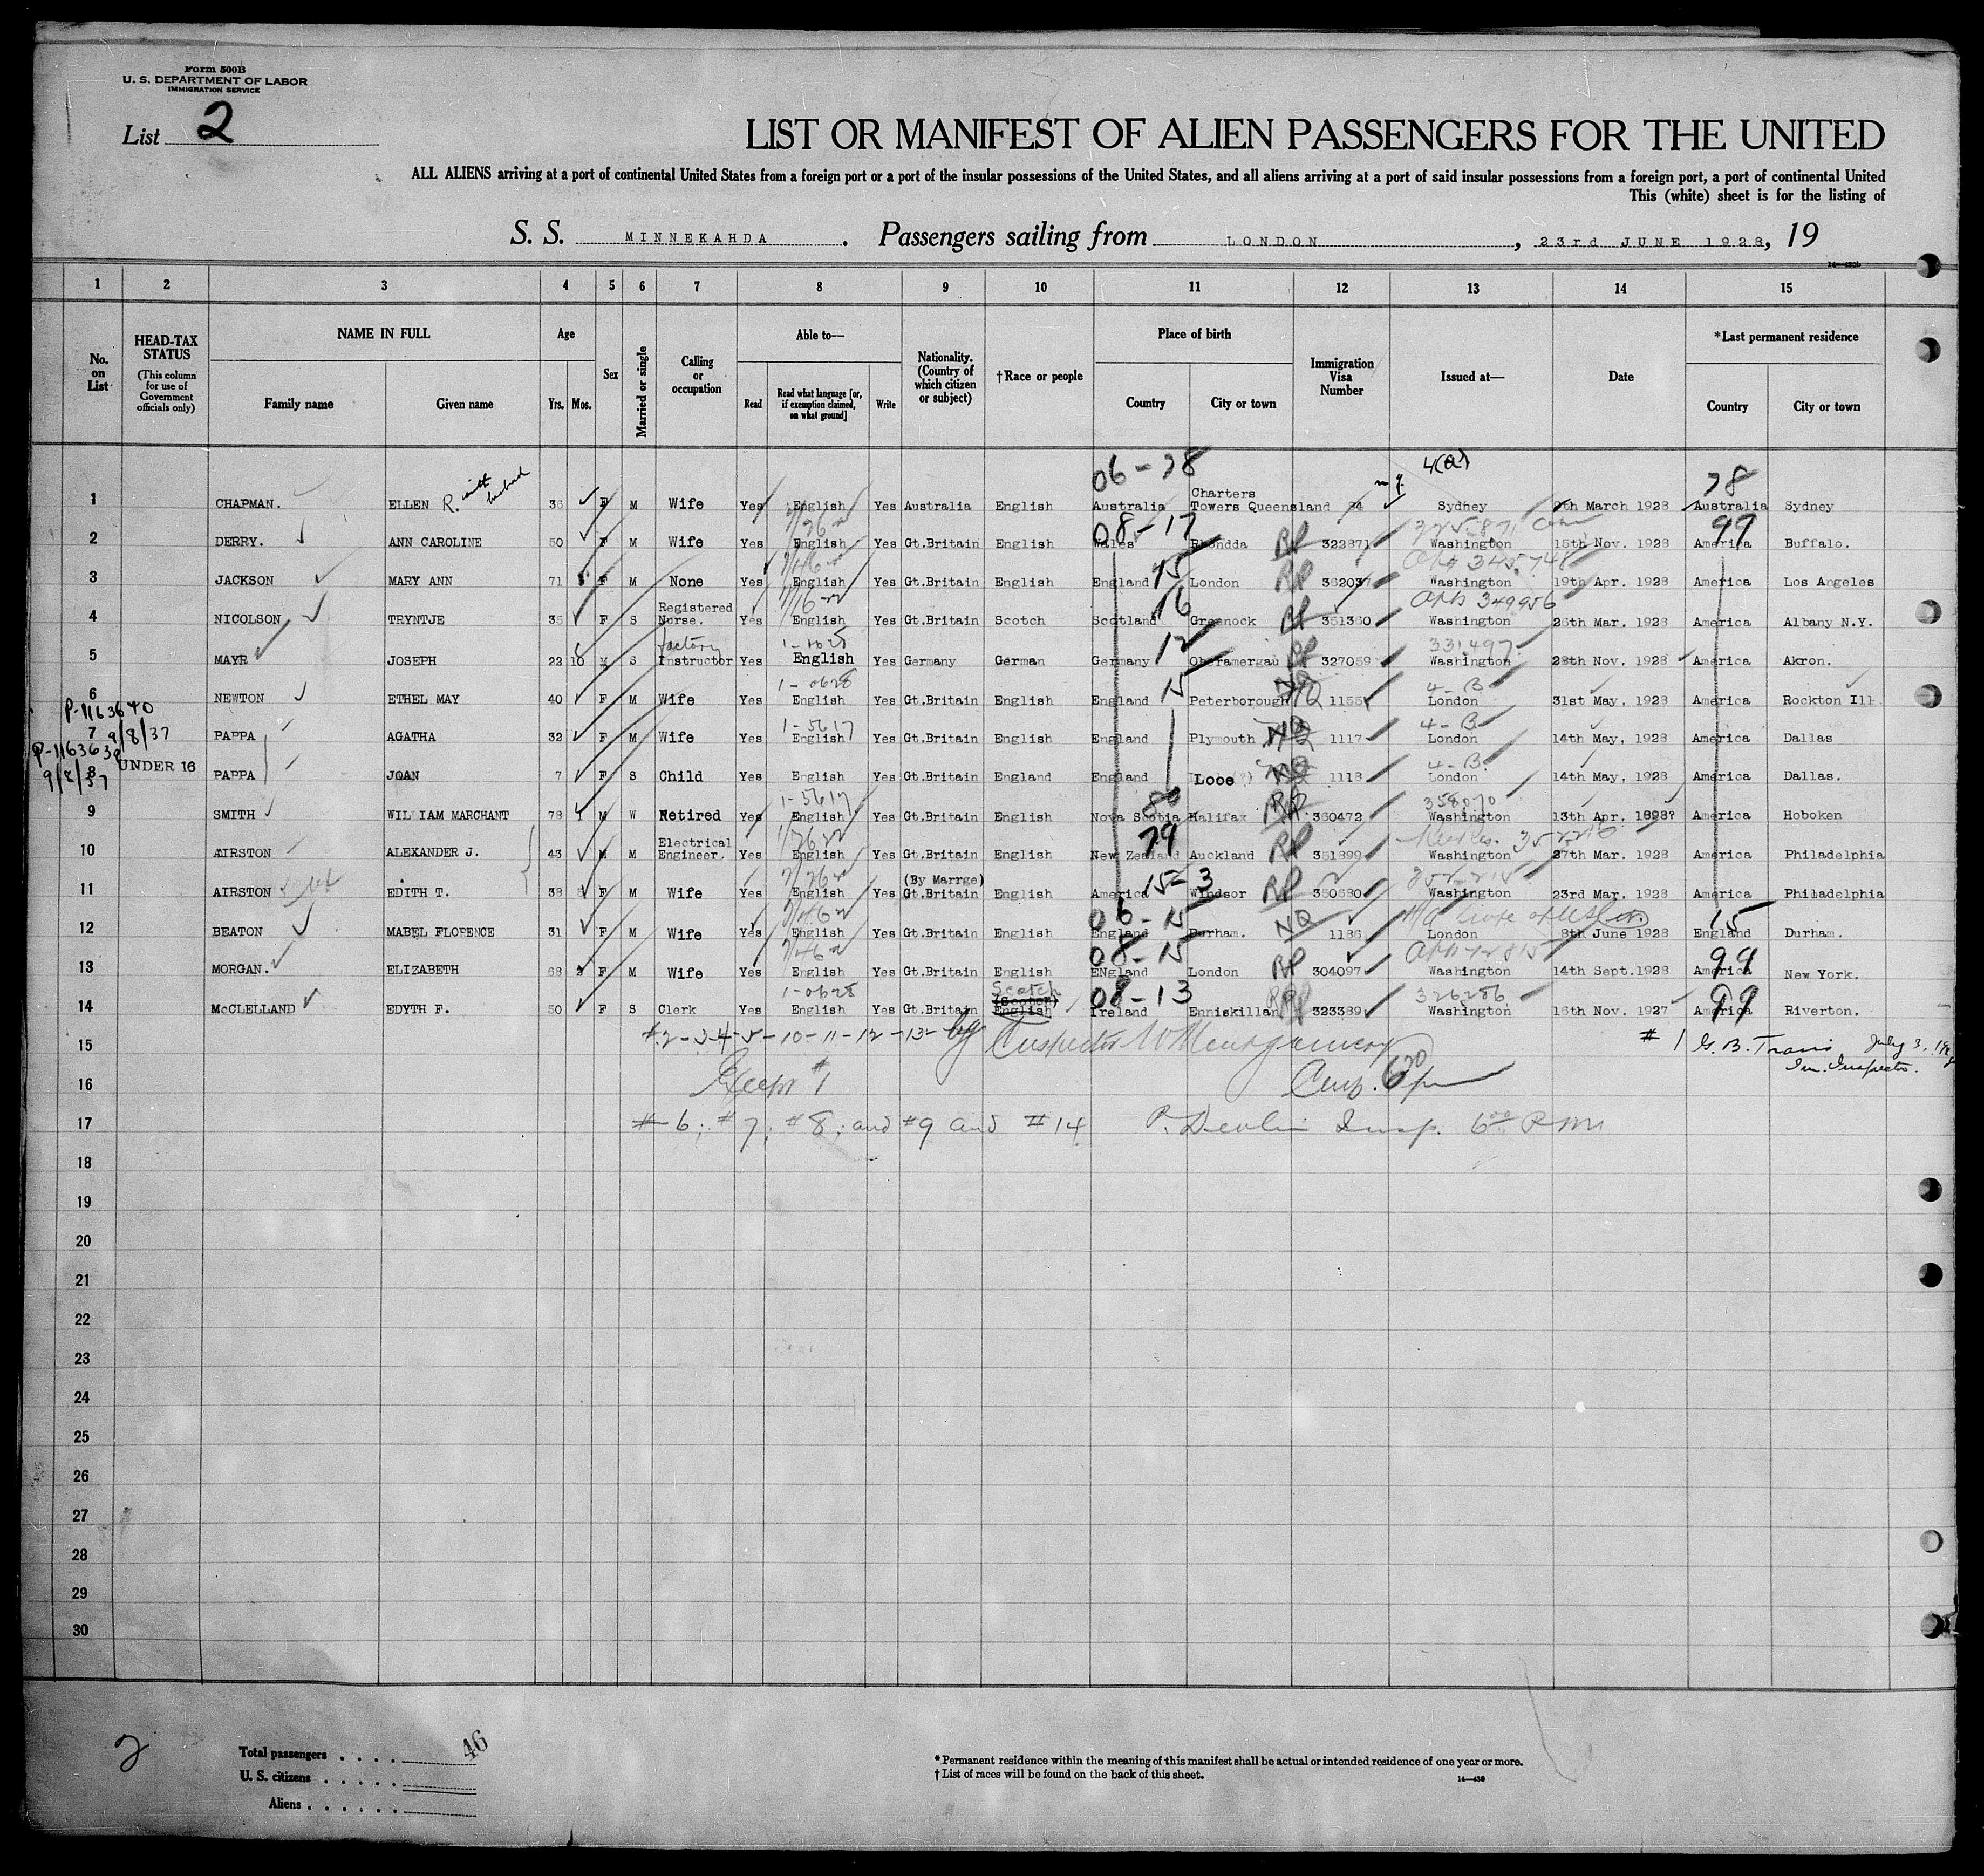 Form 500B
U. S. DEPARTMENT OF LABOR
IMMIGRATION SERVICE
List 2
LIST OR MANIFEST OF ALIEN PASSENGERS FOR THE UNITED
ALL ALIENS arriving at a port of continental United States from a foreign port or a port of the insular possessions of the United States, and all aliens arriving at a port of said insular possessions from a foreign port, a port of continental United
This (white) sheet is for the listing of
S. S. MINNEKAHDA . Passengers sailing from LONDON , 23rd JUNE 1928, 19
1 2 3 4 5 6 7 8 9 10 11 12 13 14 15
No. on List
HEAD-TAX STATUS (This column for use of Government officials only)
NAME IN FULL
Family name Given name
Age
Yrs. Mos.
Sex
Married or single
Calling or occupation
Able to—
Read Read what language [or, if exemption claimed, on what ground] Write
Nationality. (Country of which citizen or subject)
†Race or people
Place of birth
Country City or town
Immigration Visa Number
Issued at—
Date
*Last permanent residence
Country City or town
06-28 4(a) 28
1 CHAPMAN. ELLEN R. with husband 36 F M Wife Yes English Yes Australia English Australia Charters Towers Queensland 84 Sydney 9th March 1928 Australia Sydney
08-17 99
2 DERRY. ANN CAROLINE 50 F M Wife Yes English Yes Gt.Britain English Wales Rhondda RP 322871 Washington 15th Nov. 1928 America Buffalo.
15 345748
3 JACKSON MARY ANN 71 F M None Yes English Yes Gt.Britain English England London RP 362037 Washington 19th Apr. 1928 America Los Angeles
16 349956
4 NICOLSON TRYNTJE 35 F S Registered Nurse. Yes English Yes Gt.Britain Scotch Scotland Greenock RP 351360 Washington 26th Mar. 1928 America Albany N.Y.
factory 1-0628 12 331497
5 MAYR JOSEPH 22 10 M S Instructor Yes English Yes Germany German Germany Oberamergau RP 327059 Washington 28th Nov. 1928 America Akron.
1-0628 15 4-B
6 NEWTON ETHEL MAY 40 F M Wife Yes English Yes Gt.Britain English England Peterborough NQ 1155 London 31st May, 1928 America Rockton Ill
P-1163640 9/8/37 1-5617 4-B
7 PAPPA AGATHA 32 F M Wife Yes English Yes Gt.Britain English England Plymouth NQ 1117 London 14th May, 1928 America Dallas
P-1163639 9/8/37 4-B
8 UNDER 16 PAPPA JOAN 7 F S Child Yes English Yes Gt.Britain England England Looe (?) NQ 1118 London 14th May, 1928 America Dallas.
1-5617 80 358070
9 SMITH WILLIAM MARCHANT 78 1 M W Retired Yes English Yes Gt.Britain English Nova Scotia Halifax RP 360472 Washington 13th Apr. 1898? America Hoboken
79
10 AIRSTON ALEXANDER J. 43 M M Electrical Engineer. Yes English Yes Gt.Britain English New Zealand Auckland RP 351899 Washington 27th Mar. 1928 America Philadelphia
15-3
11 AIRSTON EDITH T. 38 F M Wife Yes English Yes (By Marrge) Gt.Britain English America Windsor RP 350680 Washington 23rd Mar. 1928 America Philadelphia
06-15 15
12 BEATON MABEL FLORENCE 31 F M Wife Yes English Yes Gt.Britain English England Durham. NQ 1186 London 8th June 1928 England Durham.
08-15 99
13 MORGAN. ELIZABETH 68 F M Wife Yes English Yes Gt.Britain English ENgland London RP 304097 Washington 14th Sept.1928 America New York.
1-0628 Scotch (Scotch) 08-13 326286 99
14 McCLELLAND EDYTH F. 50 F S Clerk Yes English Yes Gt.Britain English Ireland Enniskillen RP 323389 Washington 16th Nov. 1927 America Riverton.
15 #2-3-4-5-10-11-12-13- by Inspector W Montgomery #1 G. B. Travis July 3, Im. Inspector.
16 Except #1 Insp. 6 20 pm
17 #6; #7; #8; and #9 and #14 P. Devlin Insp. 6 00 P.M.
18
19
20
21
22
23
24
25
26
27
28
29
30
2
Total passengers . . . . 46
U. S. citizens . . . . .
Aliens . . . . . .
*Permanent residence within the meaning of this manifest shall be actual or intended residence of one year or more.
†List of races will be found on the back of this sheet.
14—430